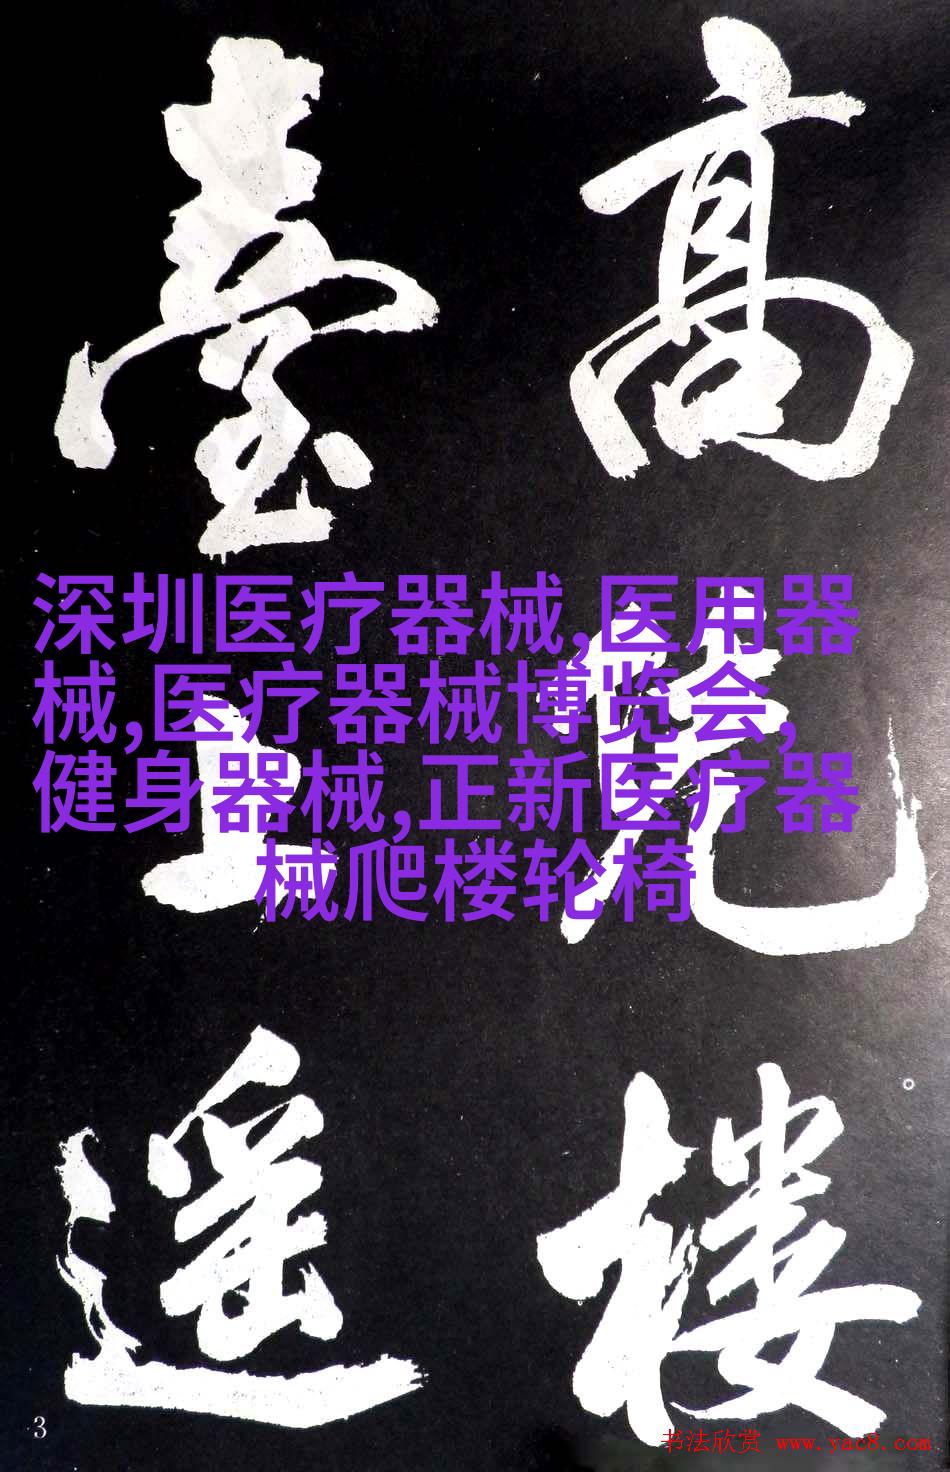 高
楼
臺
上
遥
深圳医疗器械,医用器
械,医疗器械博览会,
健身器械,正新医疗器
械爬楼轮椅
3
书法欣赏 www.yac8.com